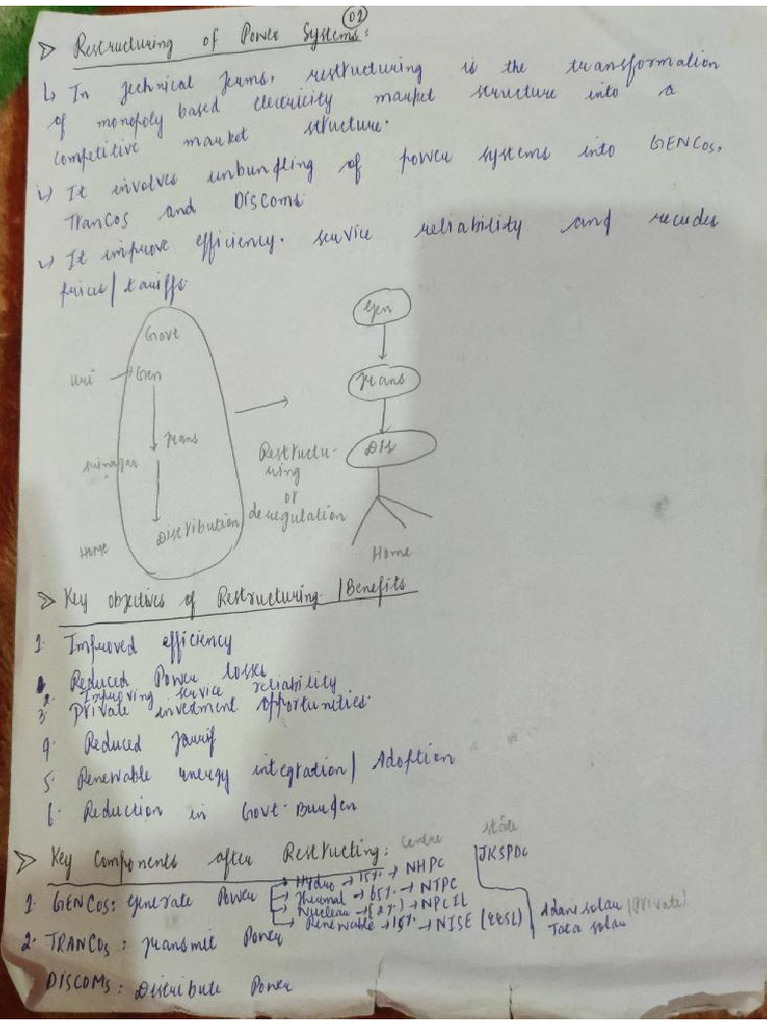 02
Restructuring of Power Systems:
In technical terms, restructuring is the transformation
of monopoly based electricity market structure into a
competitive market structure.
It involves unbunfling of power systems into GENCOs,
TranCos and DISCOMs
It improve efficiency. service reliability and recudes
prices/tariffs.
Govt
Gen
Trans
Distribution
Home
Restructu-
ring
or
deregulation
Gen
Trans
Dis
Home
Key objectives of Restructuring /Benefits
1. Improved efficiency
Reduced Power losses
2. Improving service reliability
3. Private investment opportunities.
4. Reduced Tarrif
5. Renewable energy integration/ Adoption
6. Reduction in Govt. Burden
Key Components after Restructing: Centre State
1. GENCOs: Generate Power
Hydro → 15% → NHPC
Thermal → 65% → NTPC
Nuclear → (2%) → NPCIL
Renewable → 18% → NISE (EESL)
JKSPDC
Adani solar (Private)
Tata solar
2. TRANCOs: Transmit Power
DISCOMs: Distribute Power